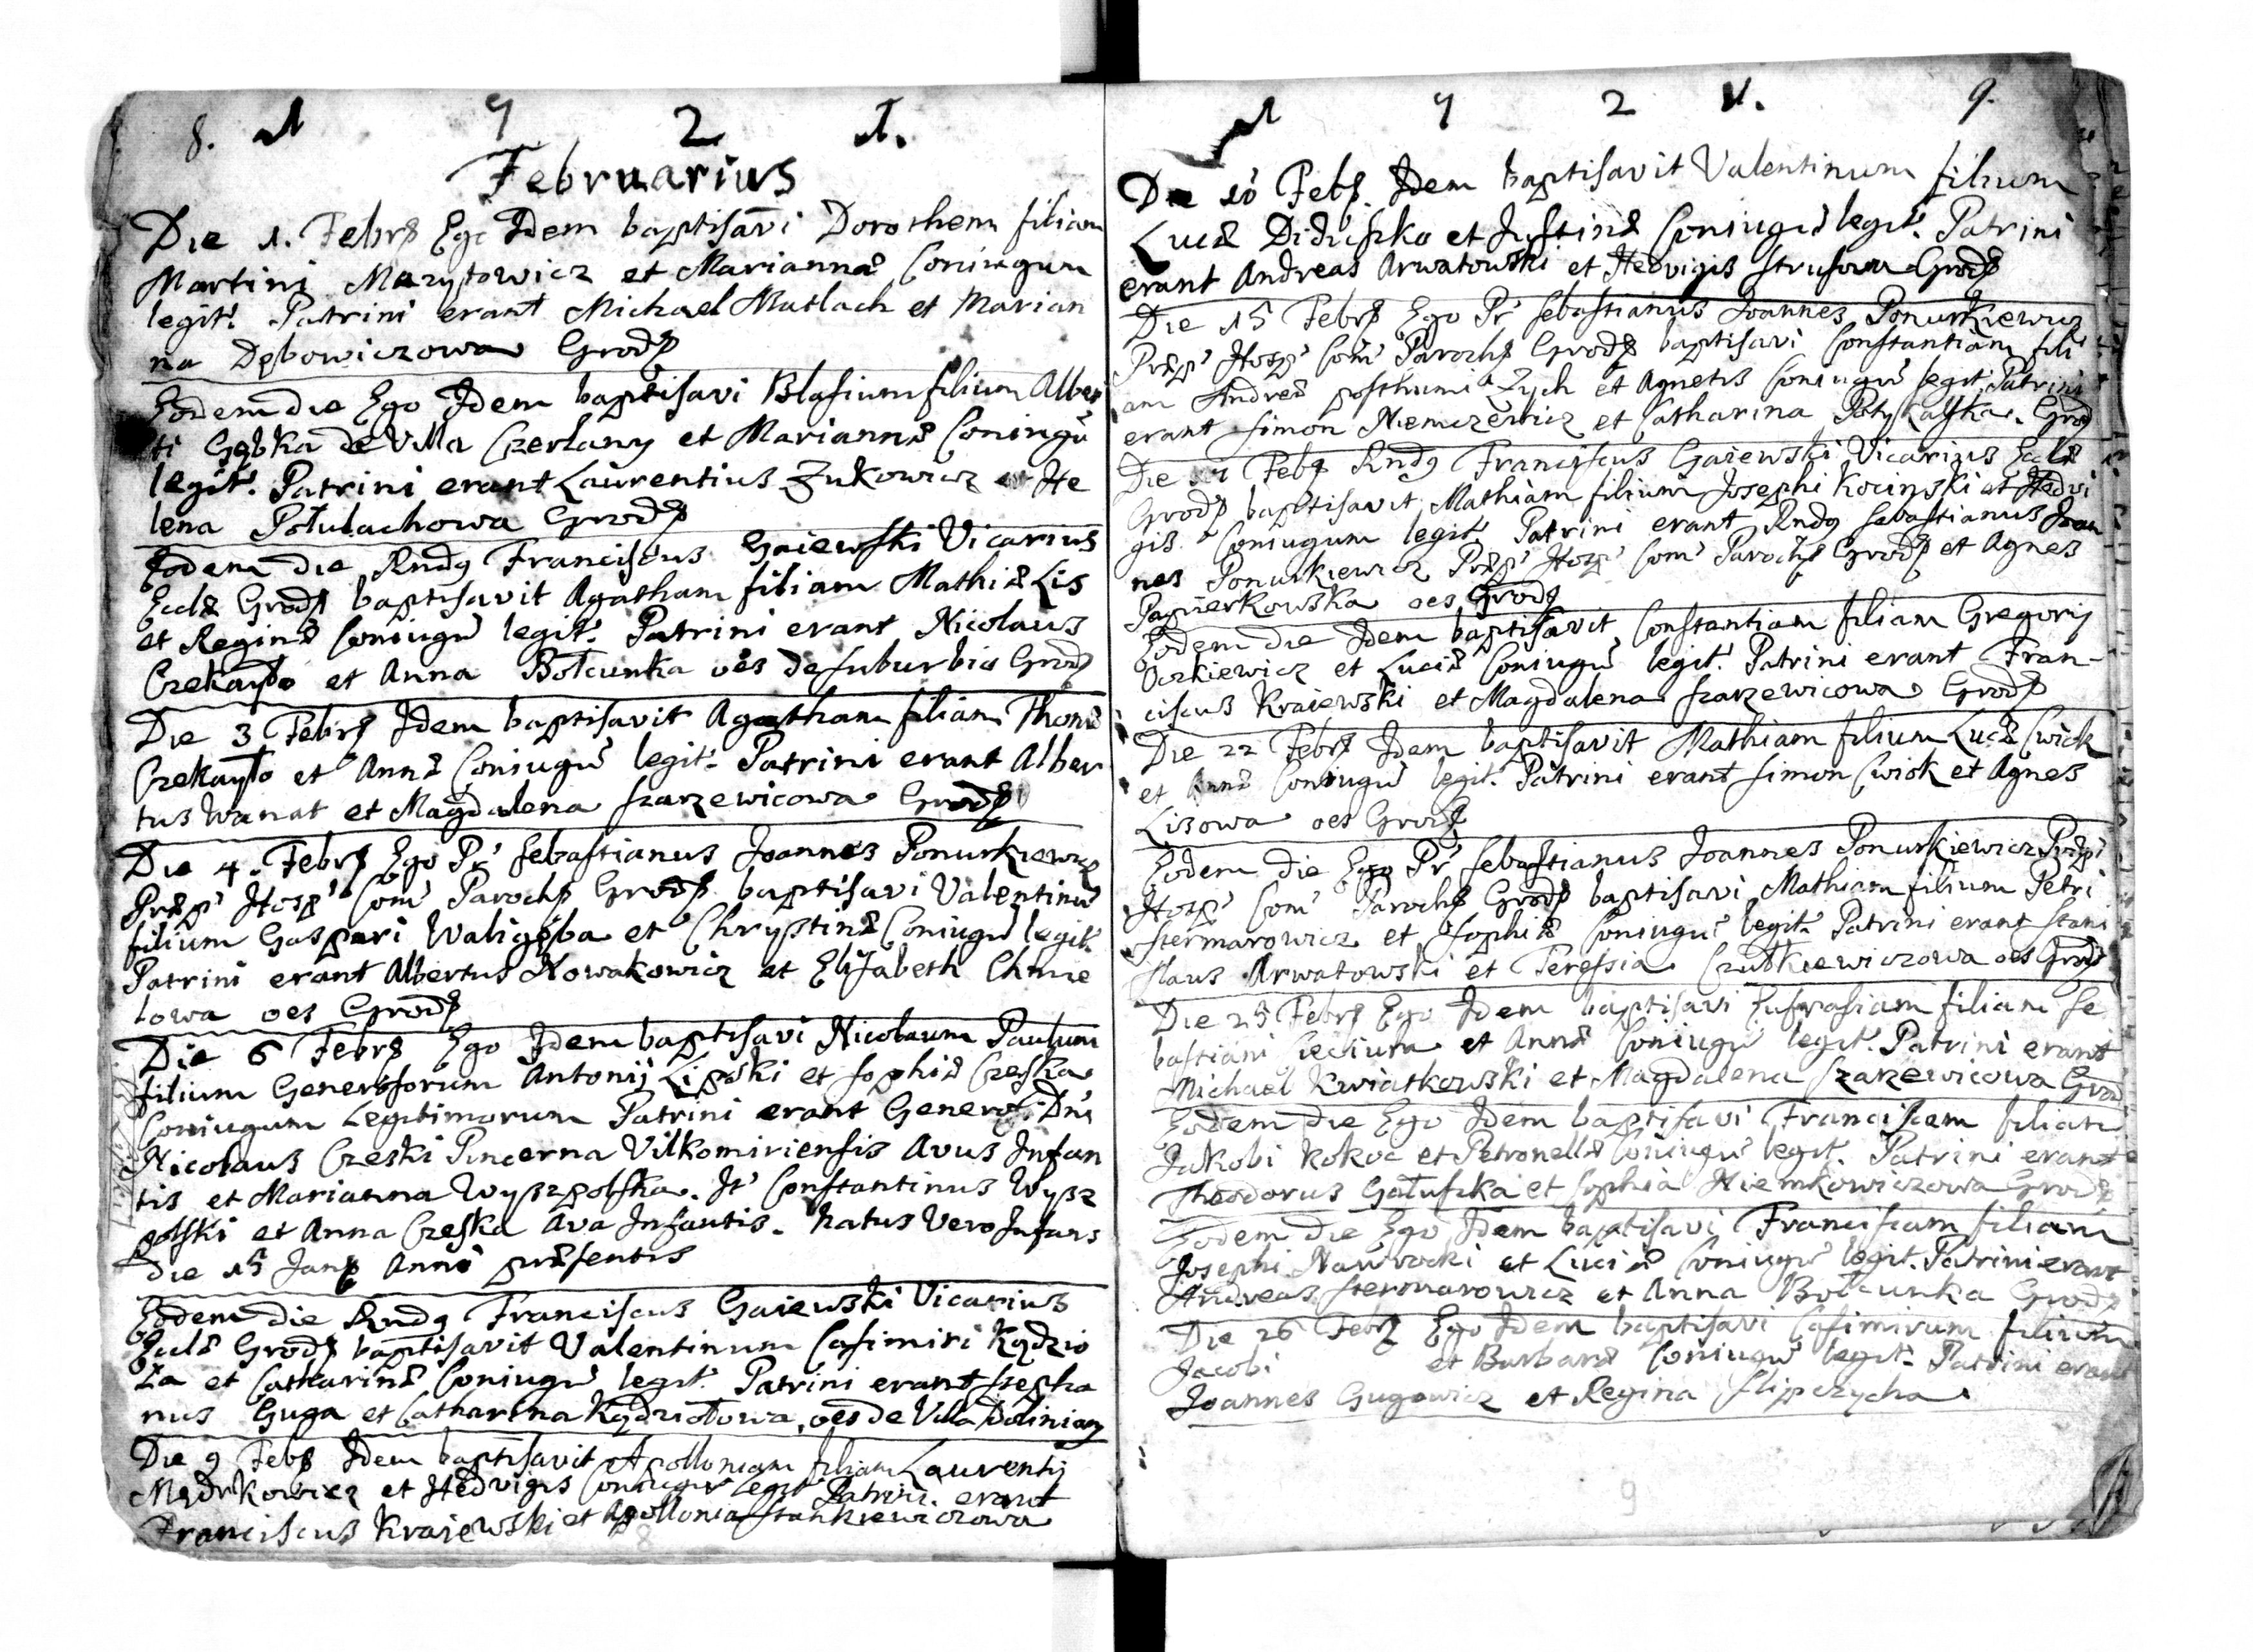 8. 1 7 2 1.
Februarius
Die 1. Febrs Ego Idem baptisavi Dorothem filiam
Martini Mazytowicz et Mariannæ Coniugum
legit: Patrini erant Michael Matlach et Marian
na Dębowiczowa Grods
Eodem die Ego Idem baptisavi Blasium filium Alber
ti Gębka de Villa Czerlany et Mariannæ Coniugũ
legit: Patrini erant Laurentius Zukowicz et He
lena Połulachowa Grods
Eodem die Rnds Franciscus Gaiewski Vicarius
Eccłæ Grods baptisavit Agatham filiam Mathiæ Lis
et Reginæ Coniugũ legit: Patrini erant Nicolaus
Czekayło et Anna Bołcunka oes de suburbio Grods
Die 3 Febrs Idem baptisavit Agatham filiam Thomæ
Czekayło et Annæ Coniugũ legit: Patrini erant Alber
tus Wanat et Magdalena Szarzewicowa Grods
Die 4. Febrs Ego Pr Sebastianus Joannes Ponurkiewicz
Præp: Hosp: Com: Parochs Grods baptisavi Valentinũ
filium Gaspari Waligóba et Chrystinæ Coniugũ legit:
Patrini erant Albertus Nowakowicz et Elisabeth Chmie
lowa oes Grods
Die 6 Febrs Ego Idem baptisavi Nicolaum Paulum
filium Generosorum Antonij Lipski et Sophiæ Czeska
Coniugum Legitimorum Patrini erant Generosi Dni
Nicolaus Czeski Pincerna Vilkomiriensis Avus Infan
tis et Marianna Wyszpolska. It Constantinus Wysz
polski et Anna Czeska Ava Infantis. Natus Vero Infans
die 15 Jans Anni præsentis
Eodem die Rnds Franciscus Gaiewski Vicarius
Eccłæ Grods baptisavit Valentinum Casimiri Kędzio
ła et Catharinæ Coniugũ legit: Patrini erant Stepha
nus Guga et Catharina Kędziołowa, oes de Villa Doliniany
Die 9 Febs Idem baptisavit Apolloniam filiam Laurentij
Mędrkowicz et Hedvigis Coniugũ legit Patrini erant
Franciscus Kraiewski et Apollonia Stankiewiczowa
8
1 7 2 1. 9.
Die 10 Febs. Idem baptisavit Valentinum filium
Lucæ Diduszko et Justinæ Coniugũ legit: Patrini
erant Andreas Arwatowski et Hedvigis Strusowa Grods
Die 15 Febrs Ego Pr Sebastianus Joannes Ponurkiewicz
Præp: Hosp: Com: Parochs Grods baptisavi Constantiam fili
am Andreæ posthumi Zych et Agnetis Coniugũ legit: Patrini
erant Simon Niemczewicz et Catharina Potykalska. Grod
Die Febs Rnds Franciscus Gaiewski Vicarius Eccłæ
Grods baptisavit Mathiam filium Josephi Kocinski et Hedvi
gis Coniugum legit: Patrini erant Rnds Sebastianus Joan
nes Ponurkiewicz Præp: Hosp: Com: Parochs Grods et Agnes
Papierkowska oes Grods
Eodem die Idem baptisavit Constantiam filiam Gregorij
Oczkiewicz et Luciæ Coniugũ legit: Patrini erant Fran-
ciscus Kraiewski et Magdalena Szarzewicowa Grods
Die 22 Febrs Idem baptisavit Mathiam filium Lucæ Cwiok
et Annæ Coniugũ legit: Patrini erant Simon Cwiok et Agnes
Lisowa oes Grods
Eodem die Ego Pr Sebastianus Joannes Ponurkiewicz Præp:
Hosp: Com: Parochs Grods baptisavi Mathiam filium Petri
Stermarowicz et Sophiæ Coniugũ legit: Patrini erant Stani
slaus Arwatowski et Teressia Czułkiewiczowa oes Grods
Die 25 Febrs Ego Idem baptisavi Eufrasiam filiam Se
bastiani Sieciura et Annæ Coniugũ legit: Patrini erant
Michael Kwiatkowski et Magdalena Szarzewicowa Grod
Eodem die Ego Idem baptisavi Franciscam filiam
Jakobi Kokoc et Petronellæ Coniugũ legit. Patrini erant
Theodorus Gałuszka et Sophia Niemkowiczowa Grods
Eodem die Ego Idem baptisavi Franciscam filiam
Josephi Nawrocki et Luciæ Coniugũ legit. Patrini erant
Andreas Stermarowicz et Anna Bołcunka Grods
Die 26 Febrs Ego Idem baptisavi Casimirum filium
Jacobi et Barbaræ Coniugũ legit: Patrini erant
Joannes Gugowicz et Regina Slipczycha
9